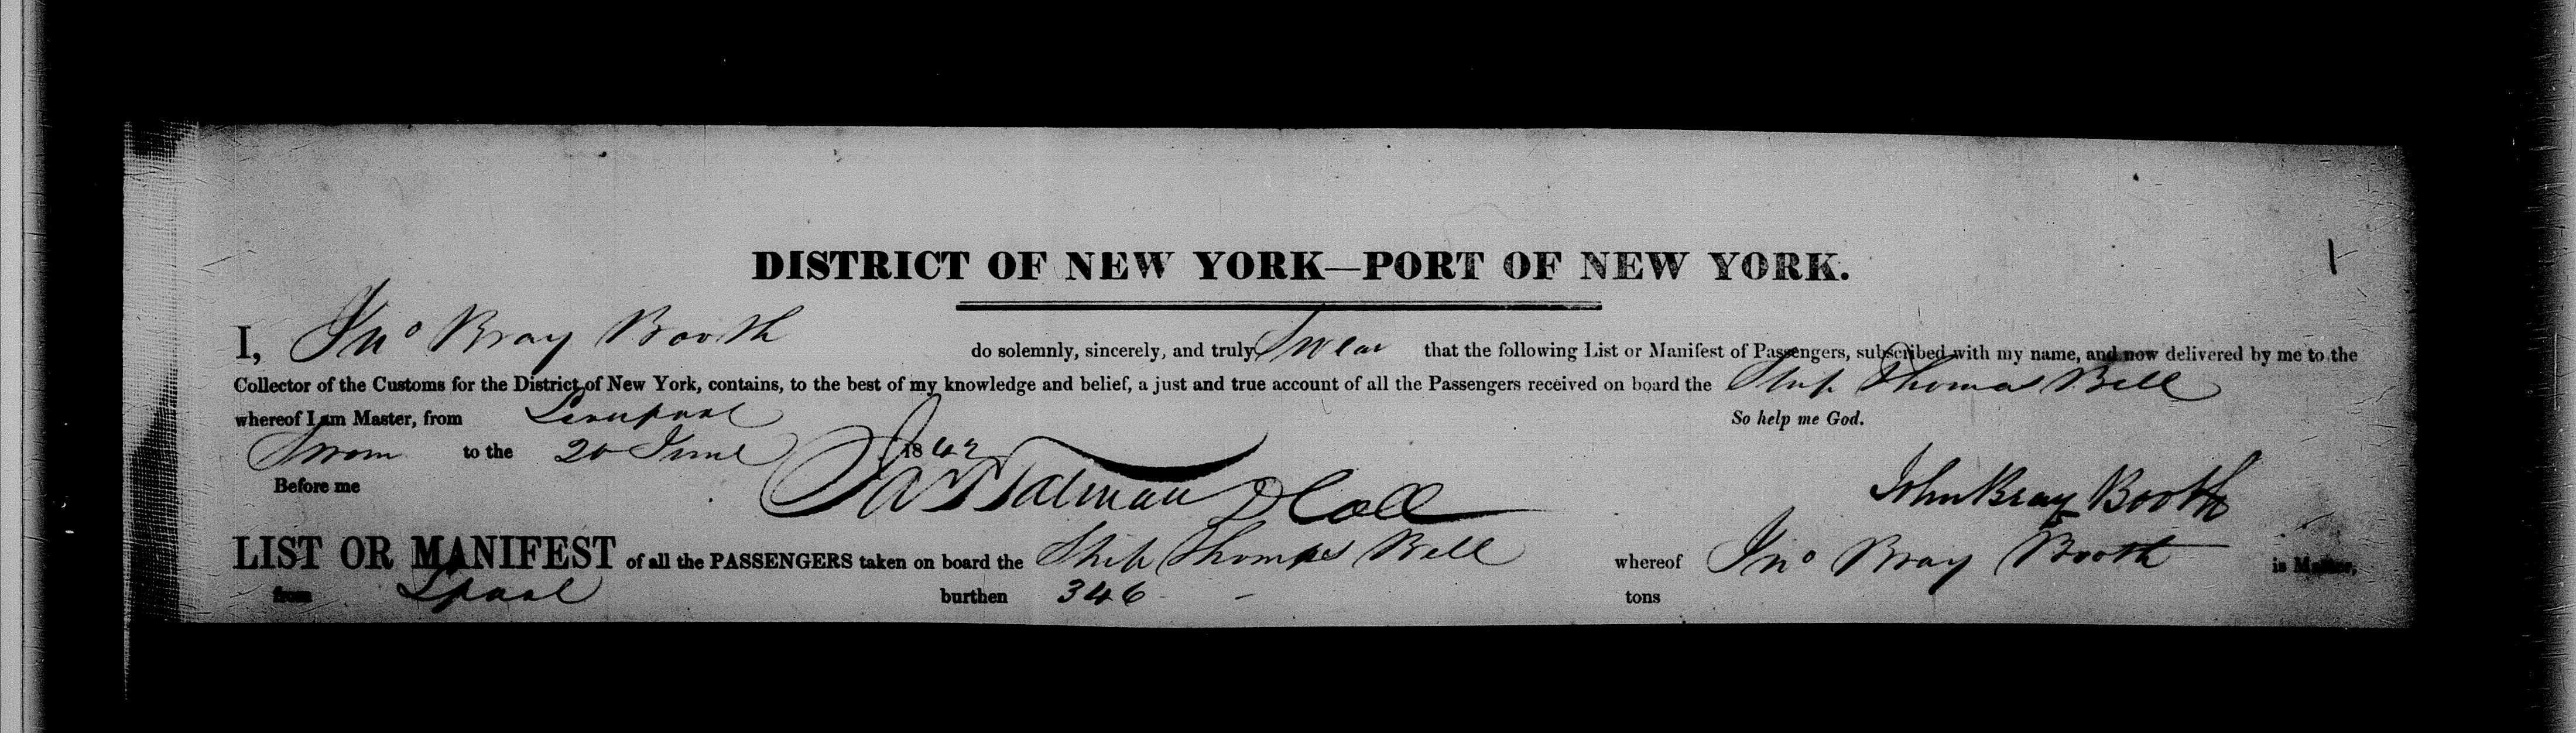 1
DISTRICT OF NEW YORK—PORT OF NEW YORK.
I, Jno Bray Booth do solemnly, sincerely, and truly Swear that the following List or Manifest of Passengers, subscribed with my name, and now delivered by me to the
Collector of the Customs for the District of New York, contains, to the best of my knowledge and belief, a just and true account of all the Passengers received on board the Ship Thomas Bell
whereof I am Master, from Liverpool So help me God.
Sworn to the 20 June 18
Before me Talman John Bray Booth
LIST OR MANIFEST of all the PASSENGERS taken on board the Ship Thomas Bell whereof Jno Bray Booth is Master,
from Lpool burthen 346 tons